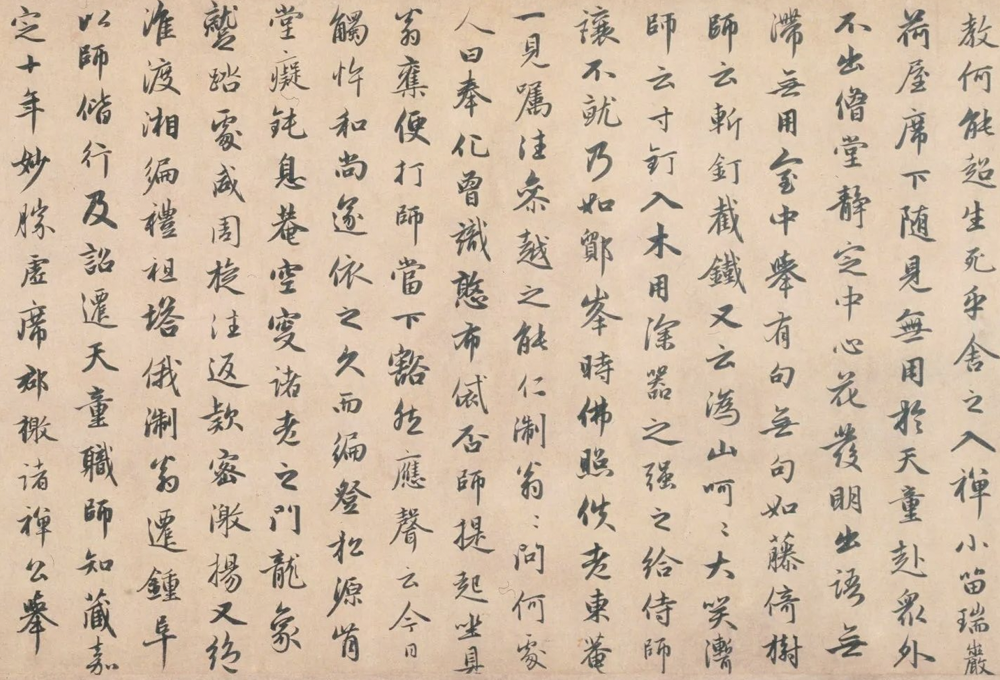 教何能超生死乎舍之入禅小笛瑞巖
荷屋席下随見無用於天童赴衆外
不出僧堂静定中心花發明出语無
滞無用室中舉有句無句如藤倚樹
師云斬釘截鐵又云溈山呵〻大笑聻
師云寸釘入木用深器之强之给侍師
讓不就乃如鄮峯時佛照佚老東菴
一見嘱注参越之能仁淛翁〻问何處
人曰奉化曾識憨布袋否師提起坐具
翁舉便打師當下豁然應聲云今日
觸忤和尚遂依之久而编登松源肯
堂癡钝息菴空叟诸老之門龍象
蹴踏處咸周旋注返款密激揚又絶
淮渡湘編禮祖塔俄淛翁遷鍾阜
以師偕行及詔遷天童職師知蔵嘉
定十年妙勝虚席郡檄诸禅公舉